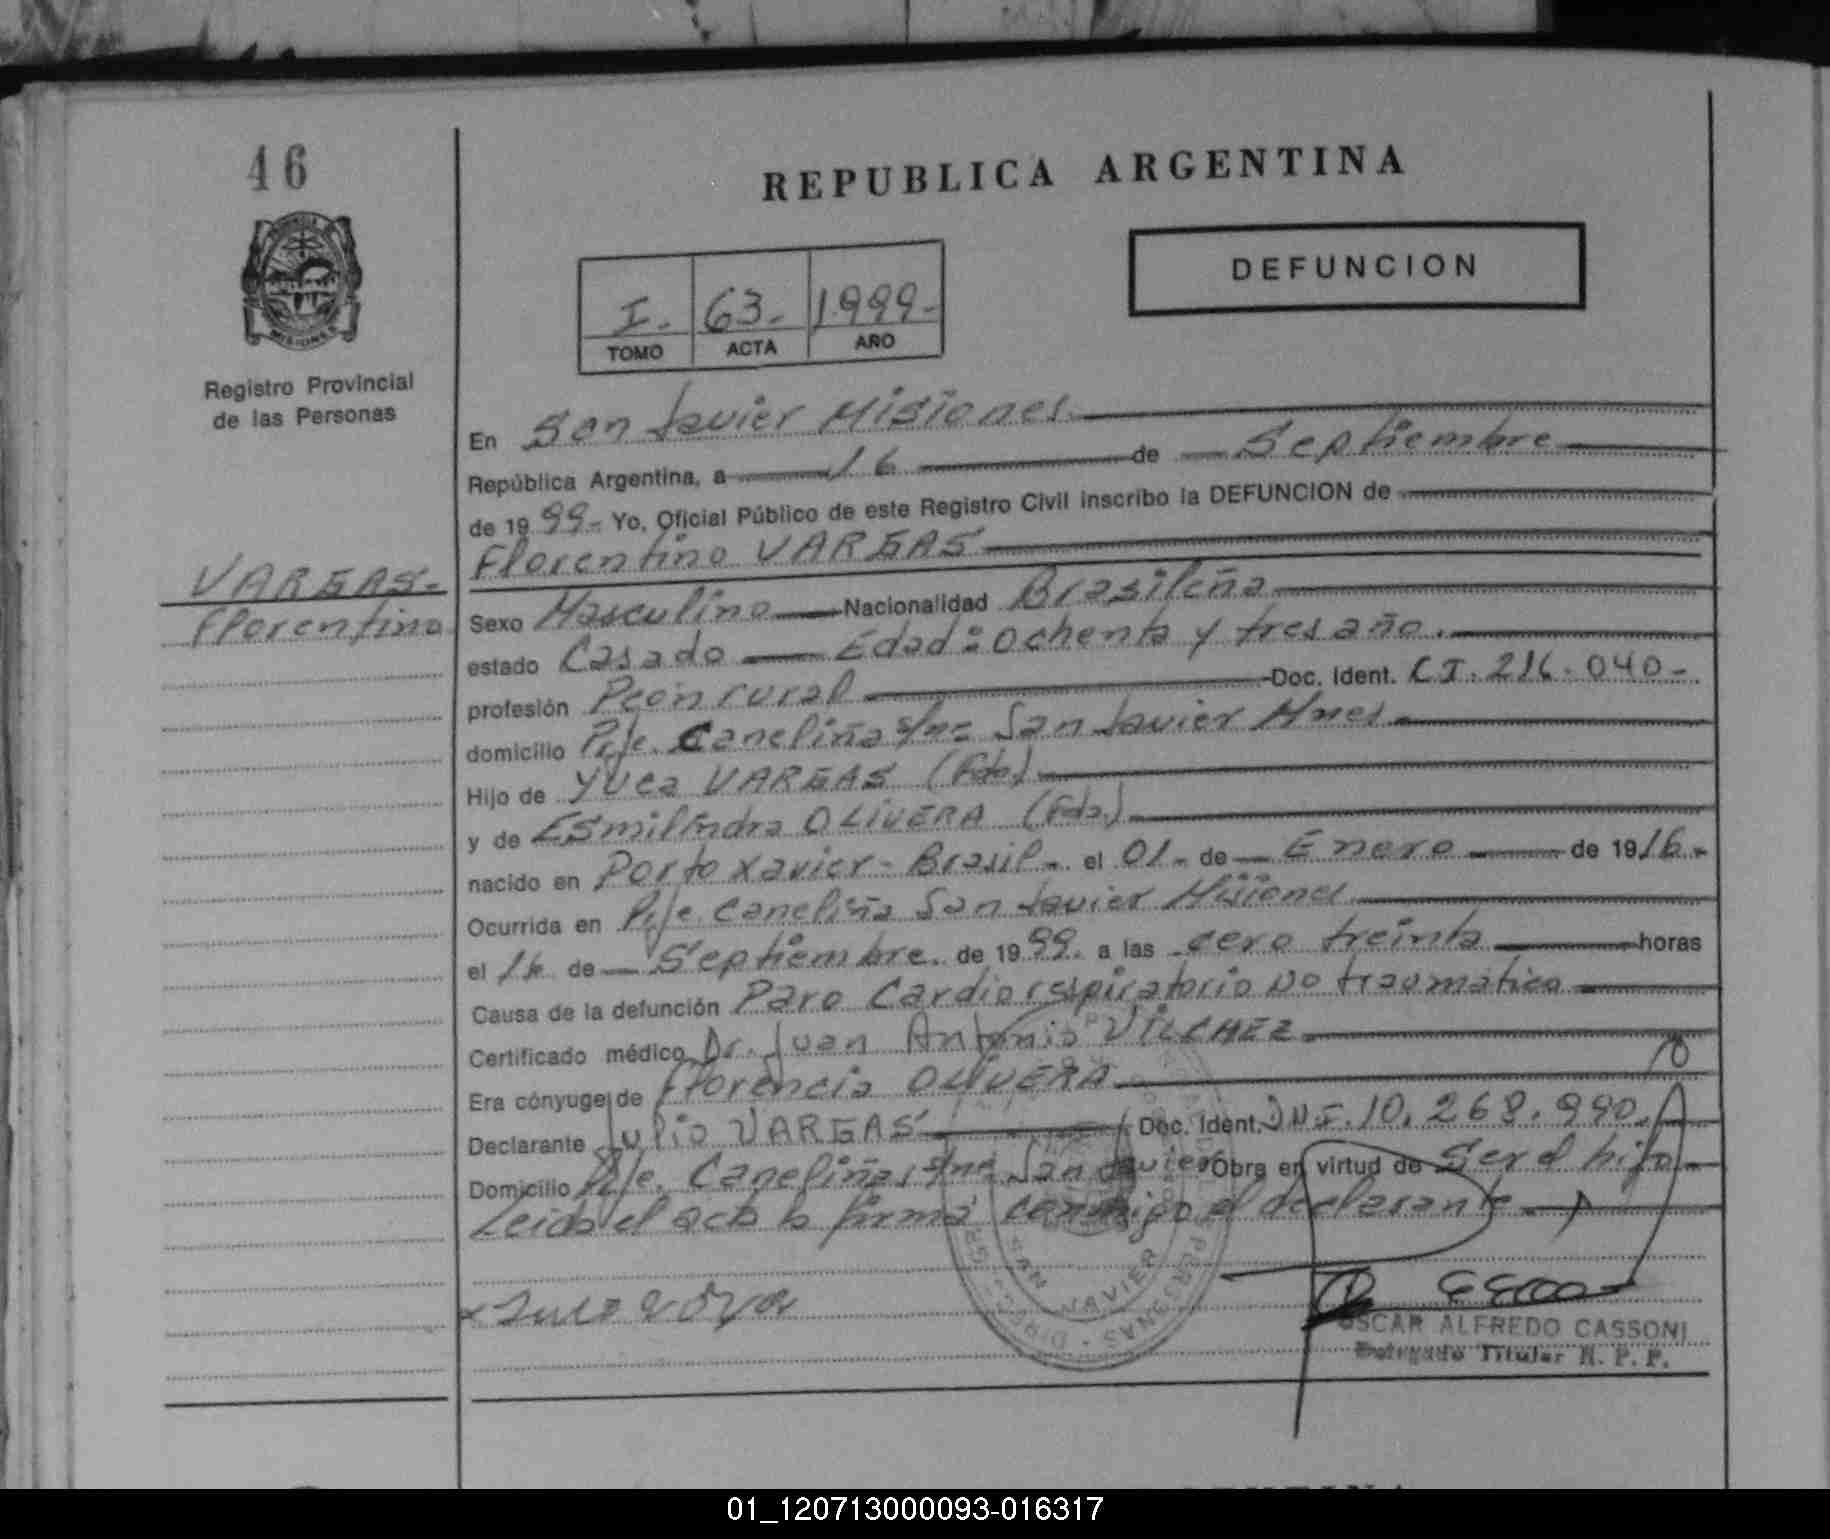 46
REPUBLICA ARGENTINA
DEFUNCION
I. 63- 1999-
TOMO ACTA AÑO
Registro Provincial
de las Personas
VARGAS-
Florentino
En San Javier Misiones
República Argentina, a 16 de Septiembre
de 1999- Yo, Oficial Público de este Registro Civil inscribo la DEFUNCION de
Florentino VARGAS
Sexo Masculino Nacionalidad Brasileña
estado Casado Edad: Ochenta y tres año.
profesión Peón rural Doc. Ident. CI. 216.040-
domicilio Pje. Caneliña s/nº San Javier Mnes.
Hijo de Yuca VARGAS (Fdo)
y de Esmilindra OLIVERA (Fda)
nacido en Porto Xavier - Brasil- el 01- de Enero de 1916-
Ocurrida en Pje. Caneliña San Javier Misiones
el 16 de Septiembre. de 1999. a las cero treinta horas
Causa de la defunción Paro Cardiorespiratorio No traumático
Certificado médico Dr. Juan Antonio VILCHEZ
Era cónyuge de Florencia OLIVERA
Declarante Julio VARGAS Doc. Ident. DNI. 10.268.990.
Domicilio Pje. Caneliña s/nº San Javier Obra en virtud de Ser el hijo
Leida el acta la firma conmigo el declarante
SAN JAVIER
OSCAR ALFREDO CASSONI
Delegado Titular R. P. P.
01_120713000093-016317